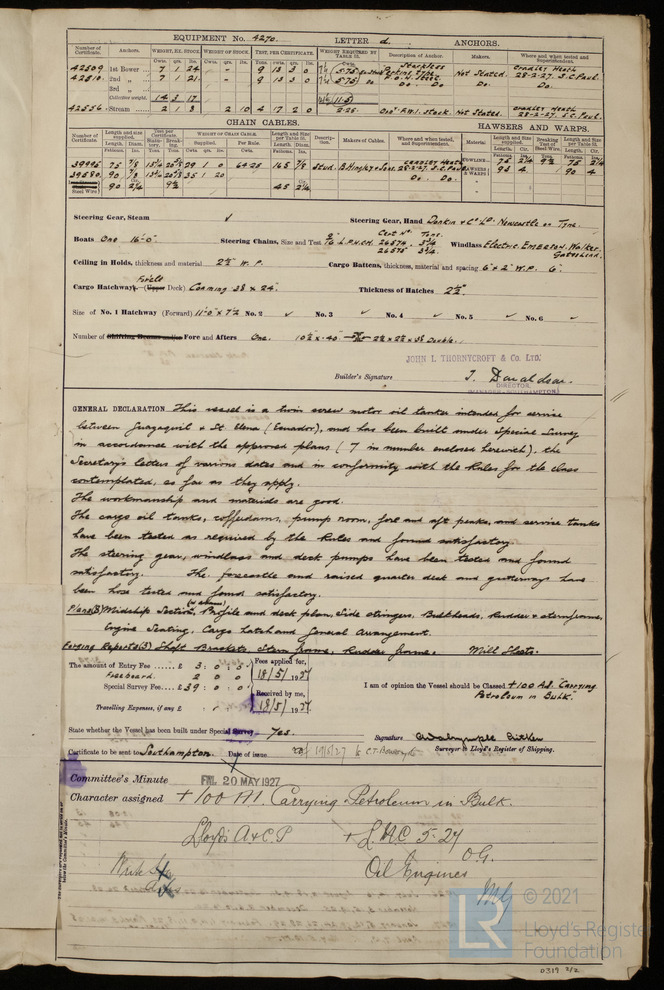 EQUIPMENT No. 4270. LETTER d. ANCHORS.
Number of Certificate. Anchors. WEIGHT, EX. STOCK WEIGHT OF STOCK. TEST, PER CERTIFICATE. WEIGHT REQUIRED BY TABLE 31. Description of Anchor. Makers. Where and when tested and Superintendent.
42509 1st Bower 7 1 24 - - 9 13 3 0 Stockless Not Stated. Cradley Heath
42510 2nd 7 1 21 - - 9 13 3 0 Do. Do. 28-2-27. S.C. Paul.
3rd Do.
Collective weight. 14 3 17
42556 Stream 2 1 3 2 10 4 17 2 0 2.25 Ord. F.W.I. Stock. Not Stated. Cradley Heath 28-2-27. S.C. Paul.
CHAIN CABLES. HAWSERS AND WARPS.
Number of Certificate. Length and size supplied. Test per Certificate. WEIGHT OF CHAIN CABLE. Length and size per Table 31. Description. Makers of Cables. Where and when tested, and Superintendent. Material Length and size supplied. Breaking Test of Steel Wire. Length and size per Table 31.
39995 75 7/8 79 1 0 64.25 165 7/8 Stud. B. Hingley & Sons. Cradley Heath 28-2-27. S.C. Paul. TOWLINE 75 2 1/4 9 1/2 75 2 1/4
39580 90 7/8 35 1 20 Do. Do. HAWSERS & WARPS 90 4 90 4
Steel Wire 90 2 1/4 9 1/2 45 2 1/4
Steering Gear, Steam ✓ Steering Gear, Hand Donkin & Co Ld. Newcastle on Tyne.
Boats One 16'-0" Steering Chains, Size and Test Cert No. Tons. 26574 26575 Windlass Electric. Emerson, Walker. Gateshead.
Ceiling in Holds, thickness and material 2 1/2" W.P. Cargo Battens, thickness, material and spacing 6" x 2" W.P. 6".
Cargo Hatchways. (Upper Deck) Coaming 28 x 24" Thickness of Hatches 2 1/2".
Size of No. 1 Hatchway (Forward) 11'-0" x 7'-2 No. 2 ✓ No. 3 ✓ No. 4 ✓ No. 5 ✓ No. 6 ✓
Number of Shifting Beams and/or Fore and Afters One.
JOHN I. THORNYCROFT & Co. LTD.
Builder's Signature T. Donaldson.
DIRECTOR.
GENERAL DECLARATION This vessel is a twin screw motor oil tanker intended for service
between Guayaquil & St Elena (Ecuador), and has been built under Special Survey
in accordance with the approved plans (7 in number enclosed herewith), the
Secretary's letters of various dates and in conformity with the Rules for the class
contemplated, as far as they apply.
The workmanship and materials are good.
The cargo oil tanks, cofferdams, pump room, fore and aft peaks, and service tanks
have been tested as required by the Rules and found satisfactory.
The steering gear, windlass and deck pumps have been tested and found
satisfactory. The forecastle and raised quarter deck and gutterways have
been hose tested and found satisfactory.
Plans (8) Midship Section, Profile and deck plan, Side stringers, Bulkheads, Rudder & sternframe,
Engine Seating, Cargo hatch and General Arrangement.
Forging Reports (3) Shaft Brackets Stern frame, Rudder frame. Mill Sheets.
The amount of Entry Fee ..... £ 3 : 0 : 0
Freeboard 2 0 0
Special Survey Fee ... £ 39 : 0 : .
Travelling Expenses, if any £ : :
Fees applied for, 18/5/1927
Received by me, 18/5/1927.
I am of opinion the Vessel should be Classed +100 A1. "Carrying
Petroleum in Bulk".
State whether the Vessel has been built under Special Survey Yes.
Signature
Surveyor to Lloyd's Register of Shipping.
Certificate to be sent to Southampton. Date of issue 19/5/27
Committee's Minute FRI. 20 MAY 1927
Character assigned +100 A1. Carrying Petroleum in Bulk.
Lloyd's A & C.P. + LMC 5-27
Oil Engines O.G.
LR © 2021
Lloyd's Register
Foundation
0319 2/2